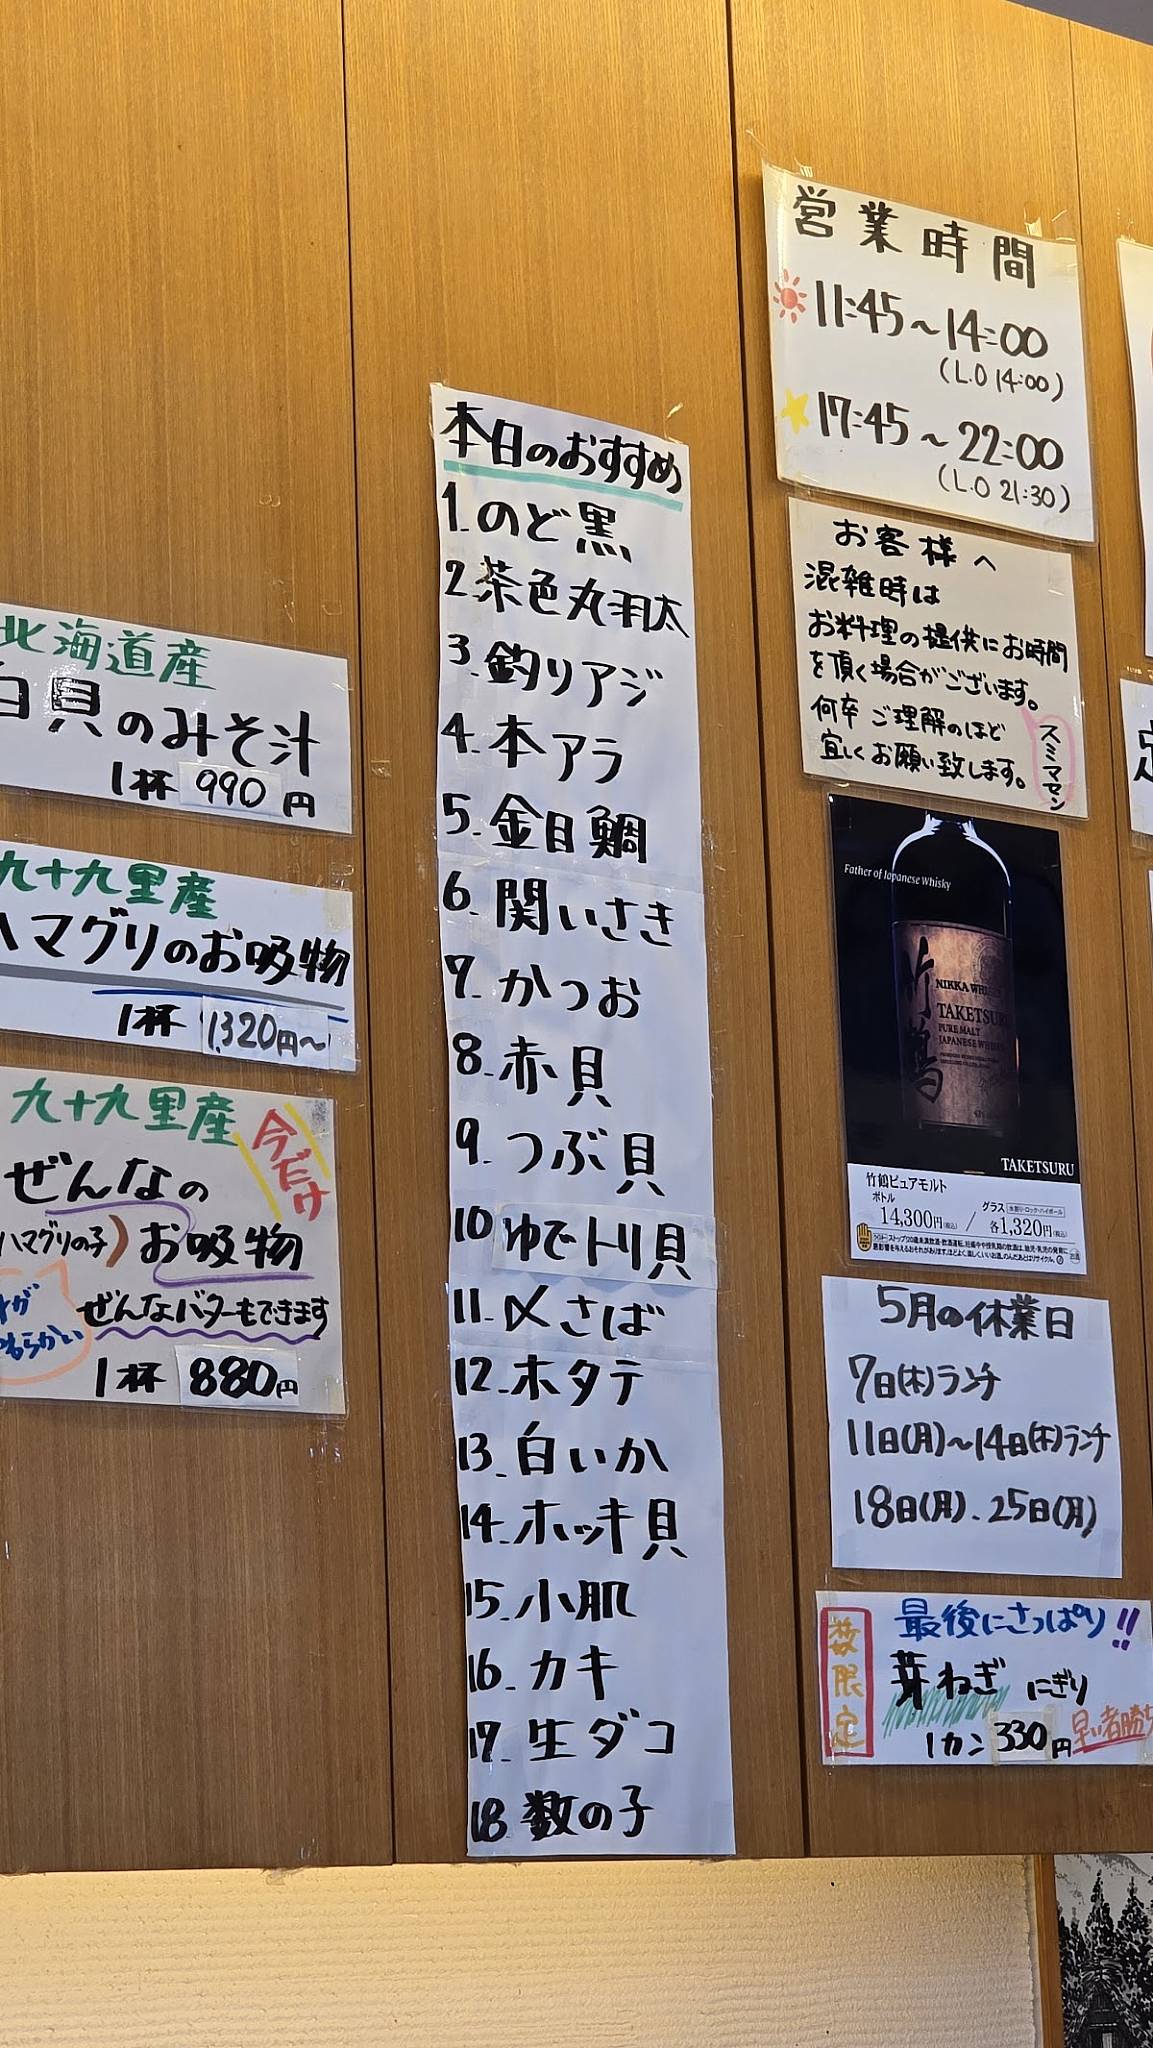 北海道産
白貝のみそ汁
1杯 990円
九十九里産
ハマグリのお吸物
1杯 1,320円〜
九十九里産
今だけ
ぜんなの
(ハマグリの子)お吸物
ぜんなバターもできます
1杯 880円
本日のおすすめ
1. のど黒
2. 茶色丸羽太
3. 釣りアジ
4. 本アラ
5. 金目鯛
6. 関いさき
7. かつお
8. 赤貝
9. つぶ貝
10 ゆでトリ貝
11. 〆さば
12. ホタテ
13. 白いか
14. ホッキ貝
15. 小肌
16. カキ
17. 生ダコ
18. 数の子
営業時間
11:45〜14:00
(L.O 14:00)
17:45〜22:00
(L.O 21:30)
お客様へ
混雑時は
お料理の提供にお時間
を頂く場合がございます。
何卒ご理解のほど
宜しくお願い致します。
スミマセン
Father of Japanese Whisky
竹鶴
NIKKA WHISKY
TAKETSURU
PURE MALT
JAPANESE WHISKY
TAKETSURU
竹鶴ピュアモルト
ボトル
14,300円(税込)
/
グラス 水割り・ロック・ハイボール
各1,320円(税込)
5月の休業日
7日(木)ランチ
11日(月)〜14日(木)ランチ
18日(月)、25日(月)
数限定
最後にさっぱり!!
芽ねぎ にぎり
1カン 330円
早い者勝ち